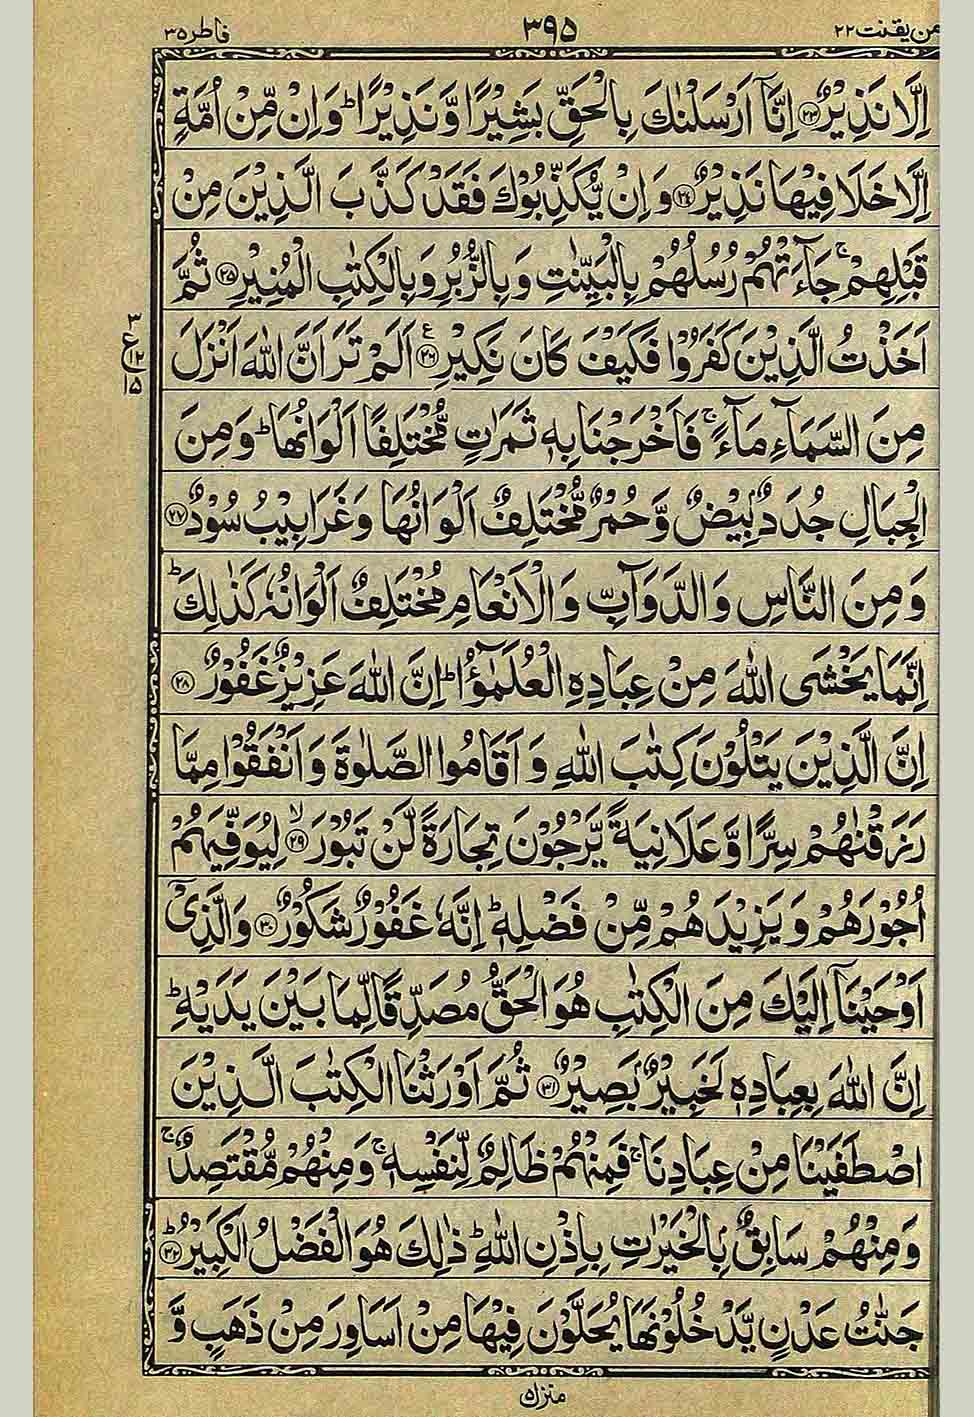 من یقنت ۲۲
۳۹۵
فاطر ۳۵
اِلَّا نَذِيْرٌ ﴿۲۳﴾ اِنَّاۤ اَرْسَلْنٰكَ بِالْحَقِّ بَشِيْرًا وَّنَذِيْرًا ؕ وَاِنْ مِّنْ اُمَّةٍ
اِلَّا خَلَا فِيْهَا نَذِيْرٌ ﴿۲۴﴾ وَاِنْ يُّكَذِّبُوْكَ فَقَدْ كَذَّبَ الَّذِيْنَ مِنْ
قَبْلِهِمْ ۚ جَآءَتْهُمْ رُسُلُهُمْ بِالْبَيِّنٰتِ وَبِالزُّبُرِ وَبِالْكِتٰبِ الْمُنِيْرِ ﴿۲۵﴾ ثُمَّ
اَخَذْتُ الَّذِيْنَ كَفَرُوْا فَكَيْفَ كَانَ نَكِيْرِ ﴿۲۶﴾ ع اَلَمْ تَرَ اَنَّ اللّٰهَ اَنْزَلَ
۳
ع
۱۲
۱۵
مِنَ السَّمَآءِ مَآءً ۚ فَاَخْرَجْنَا بِهٖ ثَمَرٰتٍ مُّخْتَلِفًا اَلْوَانُهَا ؕ وَمِنَ
الْجِبَالِ جُدَدٌۢ بِيْضٌ وَّحُمْرٌ مُّخْتَلِفٌ اَلْوَانُهَا وَغَرَابِيْبُ سُوْدٌ ﴿۲۷﴾
وَمِنَ النَّاسِ وَالدَّوَآبِّ وَالْاَنْعَامِ مُخْتَلِفٌ اَلْوَانُهٗ كَذٰلِكَ ؕ
اِنَّمَا يَخْشَى اللّٰهَ مِنْ عِبَادِهِ الْعُلَمٰٓؤُا ؕ اِنَّ اللّٰهَ عَزِيْزٌ غَفُوْرٌ ﴿۲۸﴾
اِنَّ الَّذِيْنَ يَتْلُوْنَ كِتٰبَ اللّٰهِ وَاَقَامُوا الصَّلٰوةَ وَاَنْفَقُوْا مِمَّا
رَزَقْنٰهُمْ سِرًّا وَّعَلَانِيَةً يَّرْجُوْنَ تِجَارَةً لَّنْ تَبُوْرَ ۙ﴿۲۹﴾ لِيُوَفِّيَهُمْ
اُجُوْرَهُمْ وَيَزِيْدَهُمْ مِّنْ فَضْلِهٖ ؕ اِنَّهٗ غَفُوْرٌ شَكُوْرٌ ﴿۳۰﴾ وَالَّذِيْۤ
اَوْحَيْنَاۤ اِلَيْكَ مِنَ الْكِتٰبِ هُوَ الْحَقُّ مُصَدِّقًا لِّمَا بَيْنَ يَدَيْهِ ؕ
اِنَّ اللّٰهَ بِعِبَادِهٖ لَخَبِيْرٌۢ بَصِيْرٌ ﴿۳۱﴾ ثُمَّ اَوْرَثْنَا الْكِتٰبَ الَّذِيْنَ
اصْطَفَيْنَا مِنْ عِبَادِنَا ۚ فَمِنْهُمْ ظَالِمٌ لِّنَفْسِهٖ ۚ وَمِنْهُمْ مُّقْتَصِدٌ ۚ
وَمِنْهُمْ سَابِقٌۢ بِالْخَيْرٰتِ بِاِذْنِ اللّٰهِ ؕ ذٰلِكَ هُوَ الْفَضْلُ الْكَبِيْرُ ؕ﴿۳۲﴾
جَنّٰتُ عَدْنٍ يَّدْخُلُوْنَهَا يُحَلَّوْنَ فِيْهَا مِنْ اَسَاوِرَ مِنْ ذَهَبٍ وَّ
منزل ۵